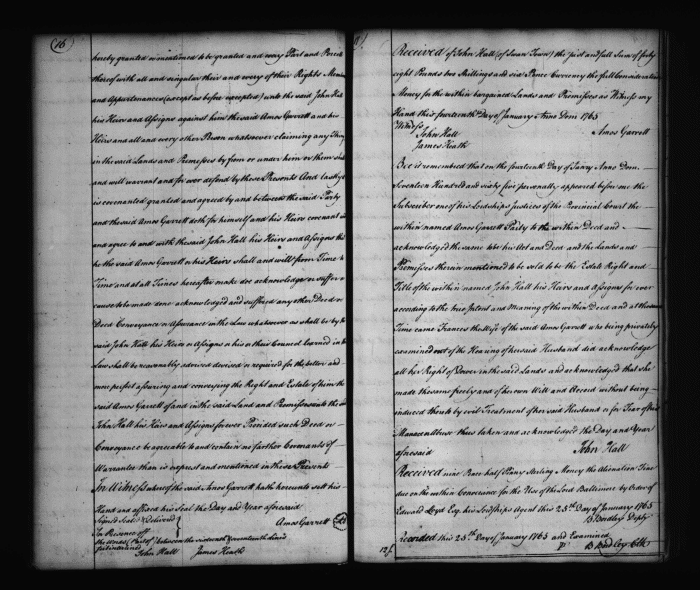 (16)
hereby granted or mentioned to be granted and every Part and Parcel
thereof with all and singular their and every of their Rights Mem
and Appurtenances (except as before excepted) unto the said John Hall
his Heirs and Assigns against him the said Amos Garrett and his
Heirs and all and every other Person whatsoever claiming any Thing
in the said Lands and Premises by from or under him or them shall
and will warrant and for ever defend by these Presents And lastly it
is covenanted granted and agreed by and between the said Party
and the said Amos Garrett doth for himself and his Heirs covenant
and agree to and with the said John Hall his Heirs and Assigns that
he the said Amos Garrett or his Heirs shall and will from Time to
Time and at all Times hereafter make doe acknowledge or suffer or
cause to be made done acknowledged and suffered any other Deed or
Deed Conveyance or Assurance in the Law whatsoever as shall be by the
said John Hall his Heirs or Assigns or his or their Council learned in the
Law shall be reasonably advised devised or required for the better and
more perfect assuring and conveying the Right and Estate of him the
said Amos Garrett of and in the said Land and Premisses unto the said
John Hall his Heirs and Assigns for ever Provided such Deed or
Conveyance be agreable to and contain no farther Covenants of
Warrantee than is exprest and mentioned in these Presents
In Witness whereof the said Amos Garrett hath hereunto sett his
Hand and affixed his Seal the Day and Year aforesaid
Signed Seal'd & Delivered
Amos Garrett
In Presence off
between the sixteenth & seventeenth lines
John Hall James Heath
Received of John Hall (of Swan Town) the just and full Sum of forty
eight Pounds two Shillings and six Pence Currency the full Consideration
Money for the within bargained Lands and Premisses as Witness my
Hand this fourteenth Day of January Anno Dom 1765
Witness
John Hall Amos Garrett
James Heath
Bee it remembered that on the fourteenth Day of Janry Anno Dom.
Seventeen Hundred and sixty five personally appeared before me the
Subscriber one of his Lordships Justices of the Provincial Court the
within named Amos Garrett Party to the within Deed and
acknowledged the same to be his Act and Deed and the Lands and
Premisses therein mentioned to be sold to be the Estate Right and
Title of the within named John Hall his Heirs and Assigns for ever
according to the true Intent and Meaning of the within Deed and at the same
Time came Frances the Wife of the said Amos Garrett who being privately
examined out of the Hearing of her said Husband did acknowledge
all her Right of Dower in the said Lands and acknowledged that she
made the same freely and of her own Will and Accord without being
induced thereto by evil Treatment of her said Husband or for Fear of his
thus taken and acknowledged the Day and Year
aforesaid John Hall
Received nine Pence half Penny Sterling Money the Alienation Fine
due on the within Conveyance for the Use of the Lord Baltimore by Order of
Edward Loyd Esq. his Lordships Agent this 25th Day of January 1765
B Bordley Depty
Recorded this 25th Day of January 1765 and Examined
Pr B Bordley Clk